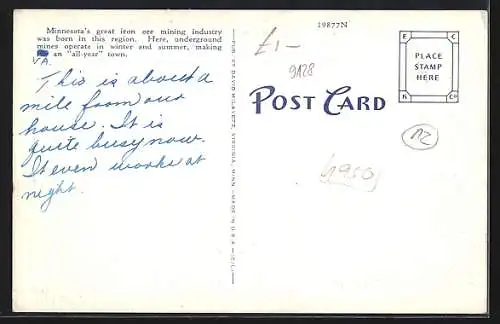 Minnesota's great iron ore mining industry
was born in this region. Here, underground
mines operate in winter and summer, making
an "all-year" town.
VA.
This is about a
mile from our
house. It is
quite busy now.
It even works at
night.
19877N
£1-
9128
POST CARD
E C
PLACE
STAMP
HERE
K Co
AZ